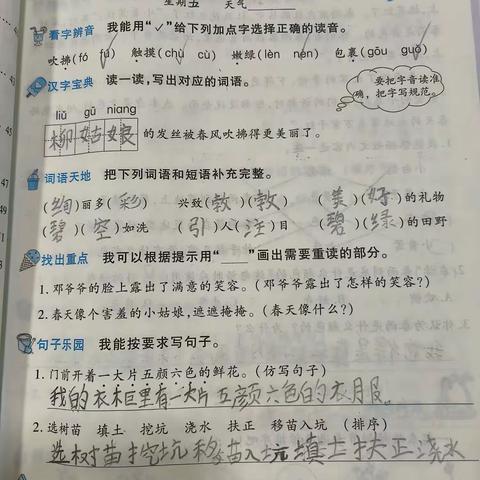 星期五 天气
看字辨音 我能用“✓”给下列加点字选择正确的读音。
吹拂(fó fú) 触摸(chù cù) 嫩绿(lèn nèn) 包裹(gōu guǒ)
汉字宝典 读一读,写出对应的词语。
要把字音读准
确,把字写规范。
liǔ gū niang
柳姑娘的发丝被春风吹拂得更美丽了。
词语天地 把下列词语和短语补充完整。
(绚)丽多(彩) 兴致(敦)(敦) (美)(好)的礼物
(碧)(空)如洗 (引)人(注)目 (碧)(绿)的田野
找出重点 我可以根据提示用“____”画出需要重读的部分。
1. 邓爷爷的脸上露出了满意的笑容。(邓爷爷露出了怎样的笑容?)
2. 春天像个害羞的小姑娘,遮遮掩掩。(春天像什么?)
句子乐园 我能按要求写句子。
1. 门前开着一大片五颜六色的鲜花。(仿写句子)
我的衣木巨里有一大片五颜六色的衣月服
2. 选树苗 填土 挖坑 浇水 扶正 移苗入坑 (排序)
选树苗挖坑移苗入坑填土扶正浇水